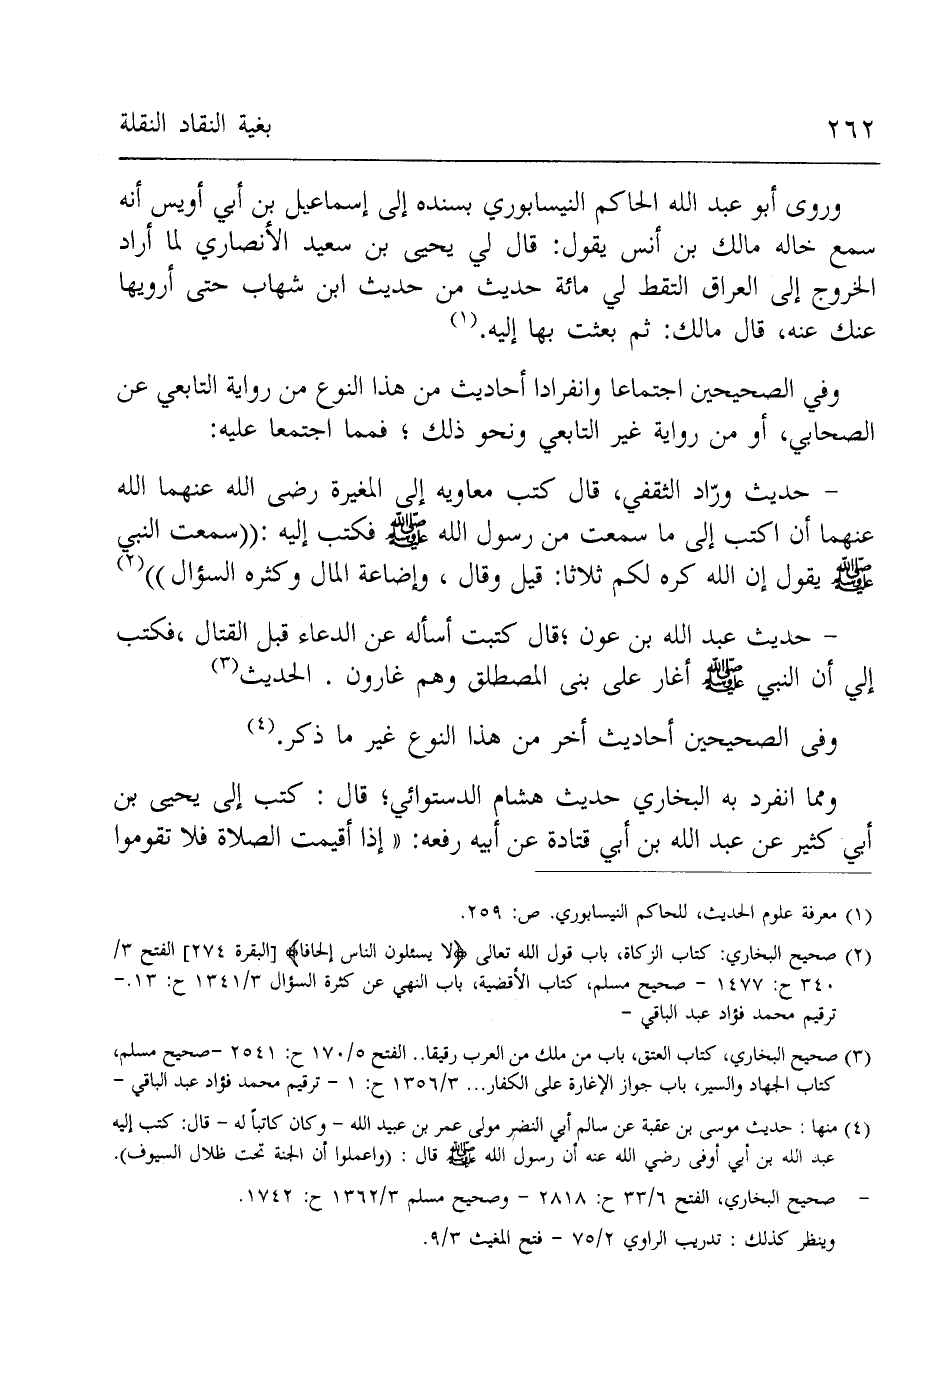 ٢٦٢ بغية النقاد النقلة
وروى أبو عبد الله الحاكم النيسابوري بسنده إلى إسماعيل بن أبي أويس أنه
سمع خاله مالك بن أنس يقول: قال لي يحيى بن سعيد الأنصاري لما أراد
الخروج إلى العراق التقط لي مائة حديث من حديث ابن شهاب حتى أرويها
عنك عنه، قال مالك: ثم بعثت بها إليه.(١)
وفي الصحيحين اجتماعا وانفرادا أحاديث من هذا النوع من رواية التابعي عن
الصحابي، أو من رواية غير التابعي ونحو ذلك ؛ فمما اجتمعا عليه:
– حديث ورّاد الثقفي، قال كتب معاويه إلى المغيرة رضى الله عنهما الله
عنهما أن اكتب إلى ما سمعت من رسول الله ﷺ فكتب إليه :((سمعت النبي
ﷺ يقول إن الله كره لكم ثلاثا: قيل وقال ، وإضاعة المال وكثره السؤال ))(٢)
– حديث عبد الله بن عون ؛قال كتبت أسأله عن الدعاء قبل القتال ،فكتب
إلي أن النبي ﷺ أغار على بنى المصطلق وهم غارون . الحديث(٣)
وفى الصحيحين أحاديث أخر من هذا النوع غير ما ذكر.(٤)
ومما انفرد به البخاري حديث هشام الدستوائي؛ قال : كتب إلى يحيى بن
أبي كثير عن عبد الله بن أبي قتادة عن أبيه رفعه: « إذا أقيمت الصلاة فلا تقوموا
(١) معرفة علوم الحديث، للحاكم النيسابوري. ص: ٢٥٩.
(٢) صحيح البخاري: كتاب الزكاة، باب قول الله تعالى ﴿لا يسئلون الناس إلحافا﴾ [البقرة ٢٧٤] الفتح ٣/
٣٤٠ ح: ١٤٧٧ – صحيح مسلم، كتاب الأقضية، باب النهي عن كثرة السؤال ١٣٤١/٣ ح: ١٣.–
ترقيم محمد فؤاد عبد الباقي –
(٣) صحيح البخاري، كتاب العتق، باب من ملك من العرب رقيقا.. الفتح ١٧٠/٥ ح: ٢٥٤١ –صحيح مسلم،
كتاب الجهاد والسير، باب جواز الإغارة على الكفار... ١٣٥٦/٣ ح: ١ – ترقيم محمد فؤاد عبد الباقي –
(٤) منها : حديث موسى بن عقبة عن سالم أبي النضر مولى عمر بن عبيد الله – وكان كاتباً له – قال: كتب إليه
عبد الله بن أبي أوفى رضي الله عنه أن رسول الله ﷺ قال : (واعملوا أن الجنة تحت ظلال السيوف).
– صحيح البخاري، الفتح ٣٣/٦ ح: ٢٨١٨ – وصحيح مسلم ١٣٦٢/٣ ح: ١٧٤٢.
وينظر كذلك : تدريب الراوي ٧٥/٢ – فتح المغيث ٩/٣.